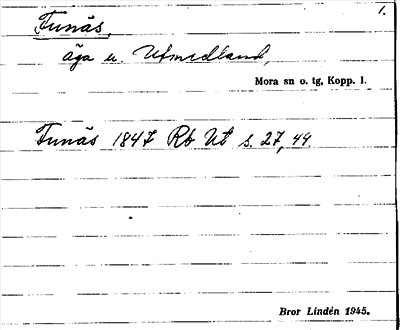 1.
Funäs,
äga u. Utmedland,
Mora sn o. tg, Kopp. l.
Funäs 1847 Rb Ut s. 27, 44.
Bror Lindén 1945.